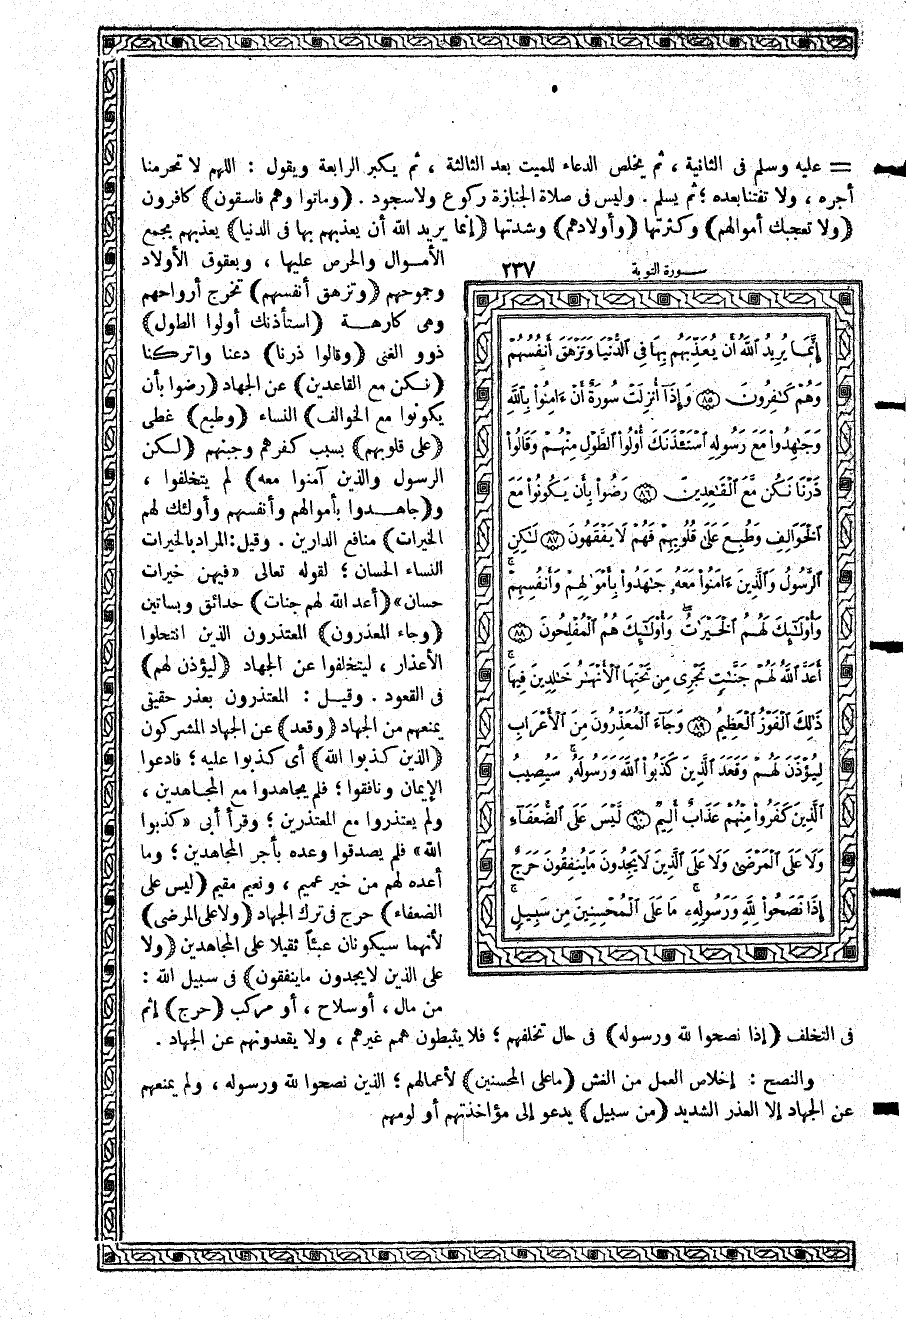 = عليه وسلم فى الثانية ، ثم يخلص الدعاء للميت بعد الثالثة ، ثم يكبر الرابعة ويقول : اللهم لا تحرمنا
أجره ، ولا تفتنا بعده ؛ ثم يسلم . وليس فى صلاة الجنازة ركوع ولا سجود . (وماتوا وهم فاسقون) كافرون
(ولا تعجبك أموالهم) وكثرتها (وأولادهم) وشدتها (إنما يريد الله أن يعذبهم بها فى الدنيا) يعذبهم بجمع
الأموال والحرص عليها ، وبعقوق الأولاد
وجموحهم (وتزهق أنفسهم) تخرج أرواحهم
وهى كارهة (استأذنك أولوا الطول)
ذوو الغنى (وقالوا ذرنا) دعنا واتركنا
(نكن مع القاعدين) عن الجهاد (رضوا بأن
يكونوا مع الخوالف) النساء (وطبع) غطى
(على قلوبهم) بسبب كفرهم وجبنهم (لكن
الرسول والذين آمنوا معه) لم يتخلفوا ،
و(جاهدوا بأموالهم وأنفسهم وأولئك لهم
الخيرات) منافع الدارين . وقيل : المراد بالخيرات
النساء الحسان ؛ لقوله تعالى «فيهن خيرات
حسان» (أعد الله لهم جنات) حدائق وبساتين
(وجاء المعذرون) المعتذرون الذين انتحلوا
الأعذار ، ليتخلفوا عن الجهاد (ليؤذن لهم)
فى القعود . وقيل : المعتذرون بعذر حقيقى
يمنعهم من الجهاد (وقعد) عن الجهاد المشركون
(الذين كذبوا الله) أى كذبوا عليه ؛ فادعوا
الإيمان ونافقوا ؛ فلم يجاهدوا مع المجاهدين ،
ولم يعتذروا مع المعتذرين ؛ وقرأ أبى «كذبوا
الله» فلم يصدقوا وعده بأجر المجاهدين ؛ وما
أعده لهم من خير عميم ، ونعيم مقيم (ليس على
الضعفاء) حرج فى ترك الجهاد (ولا على المرضى)
لأنهما سيكونان عبئاً ثقيلا على المجاهدين (ولا
على الذين لا يجدون ما ينفقون) فى سبيل الله :
من مال ، أو سلاح ، أو مركب (حرج) إثم
سورة التوبة ٢٣٧
إِنَّمَا يُرِيدُ ٱللَّهُ أَن يُعَذِّبَهُم بِهَا فِى ٱلدُّنْيَا وَتَزْهَقَ أَنفُسُهُمْ
وَهُمْ كَـٰفِرُونَ ٨٥ وَإِذَآ أُنزِلَتْ سُورَةٌ أَنْ ءَامِنُوا۟ بِٱللَّهِ
وَجَـٰهِدُوا۟ مَعَ رَسُولِهِ ٱسْتَـْٔذَنَكَ أُو۟لُوا۟ ٱلطَّوْلِ مِنْهُمْ وَقَالُوا۟
ذَرْنَا نَكُن مَّعَ ٱلْقَـٰعِدِينَ ٨٦ رَضُوا۟ بِأَن يَكُونُوا۟ مَعَ
ٱلْخَوَالِفِ وَطُبِعَ عَلَىٰ قُلُوبِهِمْ فَهُمْ لَا يَفْقَهُونَ ٨٧ لَـٰكِنِ
ٱلرَّسُولُ وَٱلَّذِينَ ءَامَنُوا۟ مَعَهُۥ جَـٰهَدُوا۟ بِأَمْوَٰلِهِمْ وَأَنفُسِهِمْ ۚ
وَأُو۟لَـٰٓئِكَ لَهُمُ ٱلْخَيْرَٰتُ ۖ وَأُو۟لَـٰٓئِكَ هُمُ ٱلْمُفْلِحُونَ ٨٨
أَعَدَّ ٱللَّهُ لَهُمْ جَنَّـٰتٍ تَجْرِى مِن تَحْتِهَا ٱلْأَنْهَـٰرُ خَـٰلِدِينَ فِيهَا ۚ
ذَٰلِكَ ٱلْفَوْزُ ٱلْعَظِيمُ ٨٩ وَجَآءَ ٱلْمُعَذِّرُونَ مِنَ ٱلْأَعْرَابِ
لِيُؤْذَنَ لَهُمْ وَقَعَدَ ٱلَّذِينَ كَذَبُوا۟ ٱللَّهَ وَرَسُولَهُۥ ۚ سَيُصِيبُ
ٱلَّذِينَ كَفَرُوا۟ مِنْهُمْ عَذَابٌ أَلِيمٌ ٩٠ لَّيْسَ عَلَى ٱلضُّعَفَآءِ
وَلَا عَلَى ٱلْمَرْضَىٰ وَلَا عَلَى ٱلَّذِينَ لَا يَجِدُونَ مَا يُنفِقُونَ حَرَجٌ
إِذَا نَصَحُوا۟ لِلَّهِ وَرَسُولِهِۦ ۚ مَا عَلَى ٱلْمُحْسِنِينَ مِن سَبِيلٍ ۚ
فى التخلف (إذا نصحوا لله ورسوله) فى حال تخلفهم ؛ فلا يثبطون همم غيرهم ، ولا يقعدونهم عن الجهاد .
والنصح : إخلاص العمل من الغش (ما على المحسنين) لأعمالهم ؛ الذين نصحوا لله ورسوله ، ولم يمنعهم
عن الجهاد إلا العذر الشديد (من سبيل) يدعو إلى مؤاخذتهم أو لومهم